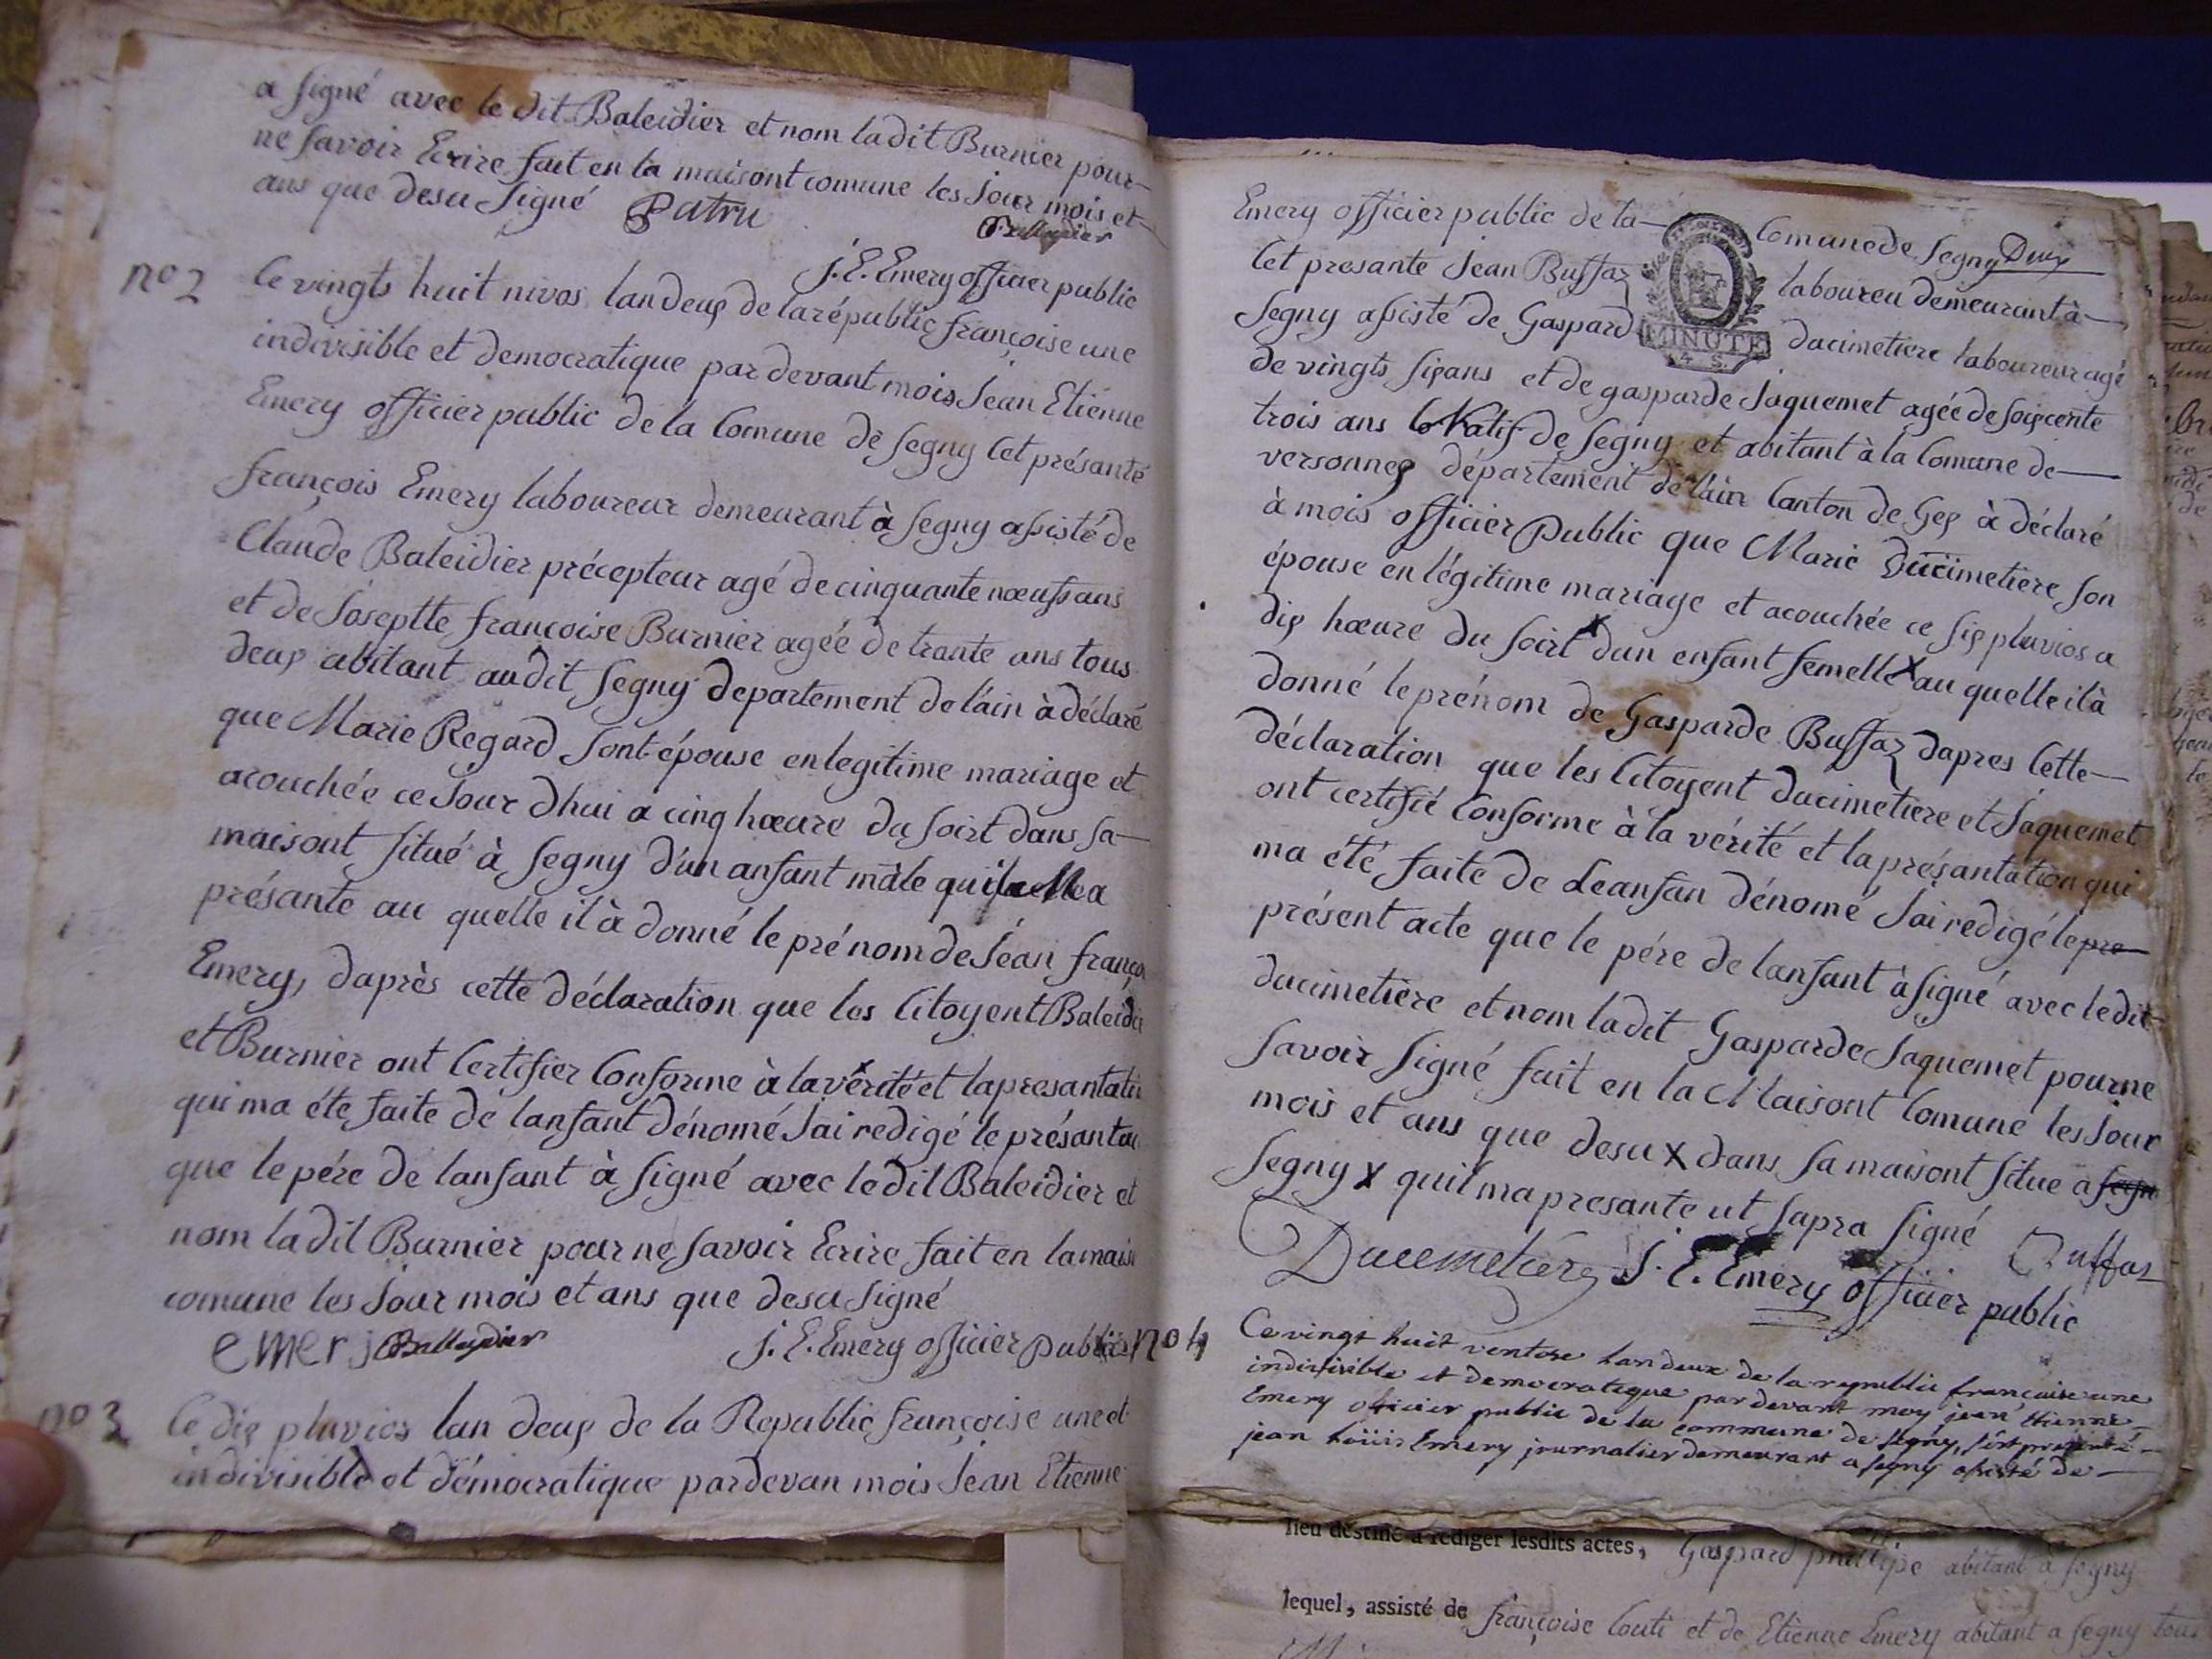 a signé avec le dit Baleidier et nom ladit Burnier pour
ne savoir Ecrire fait en la maisont comune les Jour mois et
ans que desu signé Patru
Balleydier
J. E. Emery officier public
no 2 Ce vingts huit nivos lan deux de la républic françoise une
indivisible et democratique par devant mois Jean Etienne
Emery officier public de la Comune de segny Cet présanté
françois Emery laboureur demeurant à segny assisté de
Claude Baleidier précepteur agé de cinquante nœuf ans
et de Joseptte françoise Burnier agée de trante ans tous
deux abitant audit segny departement de lain à déclaré
que Marie Regard sont épouse en legitime mariage et
acouchée ce Jour dhui a cinq hœure du soirt dans sa
maisont situé à segny d'un anfant mâle quil ma
présante au quelle il à donné le prénom de Jéan franço
Emery, daprès cette déclaration que les Citoyent Baleidi
et Burnier ont Certifier Conforme à la vérité et la presantatio
qui ma éte faite de lanfant dénomé Jai redigé le présant ac
que le pére de lanfant à signé avec le dit Baleidier et
nom ladit Burnier pour ne savoir Ecrire fait en la mais
comune les Jour mois et ans que desu signé
emery Balleydier J. E. Emery officier public
no 3 Ce dix pluvios lan deux de la Republic françoise une et
indivisible et démocratique pardevan mois Jean Etienne
Emery officier public de la Comune de Segny Deux
Cet presante Jean Buffaz laboureu demeurant à
MINUTE
4 S.
segny assisté de Gaspard ducimetiere laboureur agé
de vingts six ans et de gasparde Jaquemet agée de soixcente
trois ans Natif de segny et abitant à la Comune de
versonnex département de lain Canton de Gex à déclaré
à mois officier public que Marie Ducimetiere son
épouse en légitime mariage et acouchée ce six pluvios a
dix hœure du soirt x dun enfant femelle x au quelle il à
donné le prénom de Gasparde Buffaz dapres Cette
déclaration que les Citoyent ducimetiere et Jaquemet
ont certifié Conforme à la vérité et la présantation qui
ma été faite de Leanfan dénomé Jai redigé le pre
présent acte que le pére de lanfant à signé avec le dit
ducimetiere et nom ladit Gasparde Jaquemet pour ne
savoir signé fait en la Maisont Comune les Jour
mois et ans que desu x dans sa maisont situe a segn
segny x quil ma presante ut sapra signé Buffaz
Ducemetiére J. E. Emery officier public
no 4 Ce vingt huit ventose lan deux de la republic françaisse une
indivisible et democratique par devant moy jean etienne
Emery oficier public de la commune de segny, s'est presenté
jean loüis Emery journalier demeurant a segny assisté de
lieu destiné à rédiger lesdits actes, Gaspard phillipe abitant a segny
lequel, assisté de françoise Couti et de Etienne Emery abitant a segny tous